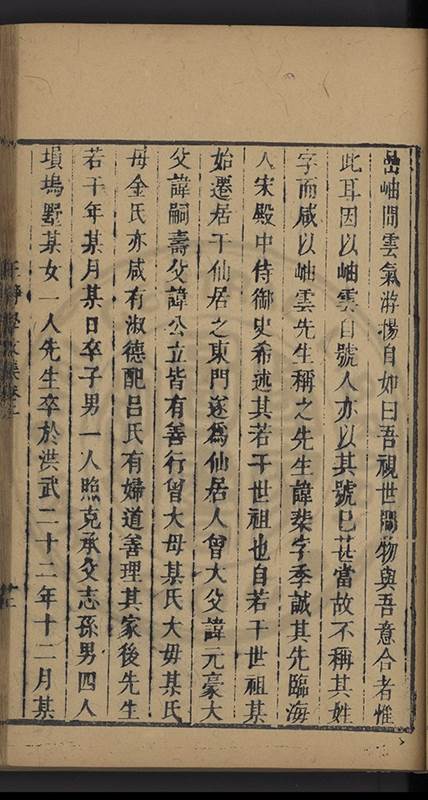 嵒岫間雲氣游揚自如曰吾視世間物與吾意合者惟
此耳因以岫雲自號人亦以其號已甚當故不稱其姓
字而咸以岫雲先生稱之先生諱棐字季誠其先臨海
人宋殿中侍御史希述其若干世祖也自若干世祖某
始遷居于仙居之東門遂爲仙居人曾大父諱元豪大
父諱嗣壽父諱公立皆有善行曾大母某氏大母某氏
母金氏亦咸有淑德配呂氏有婦道善理其家後先生
若干年某月某日卒子男一人熙克承父志孫男四人
塤塢墅某女一人先生卒於洪武二十二年十二月某
王靜學文集卷二